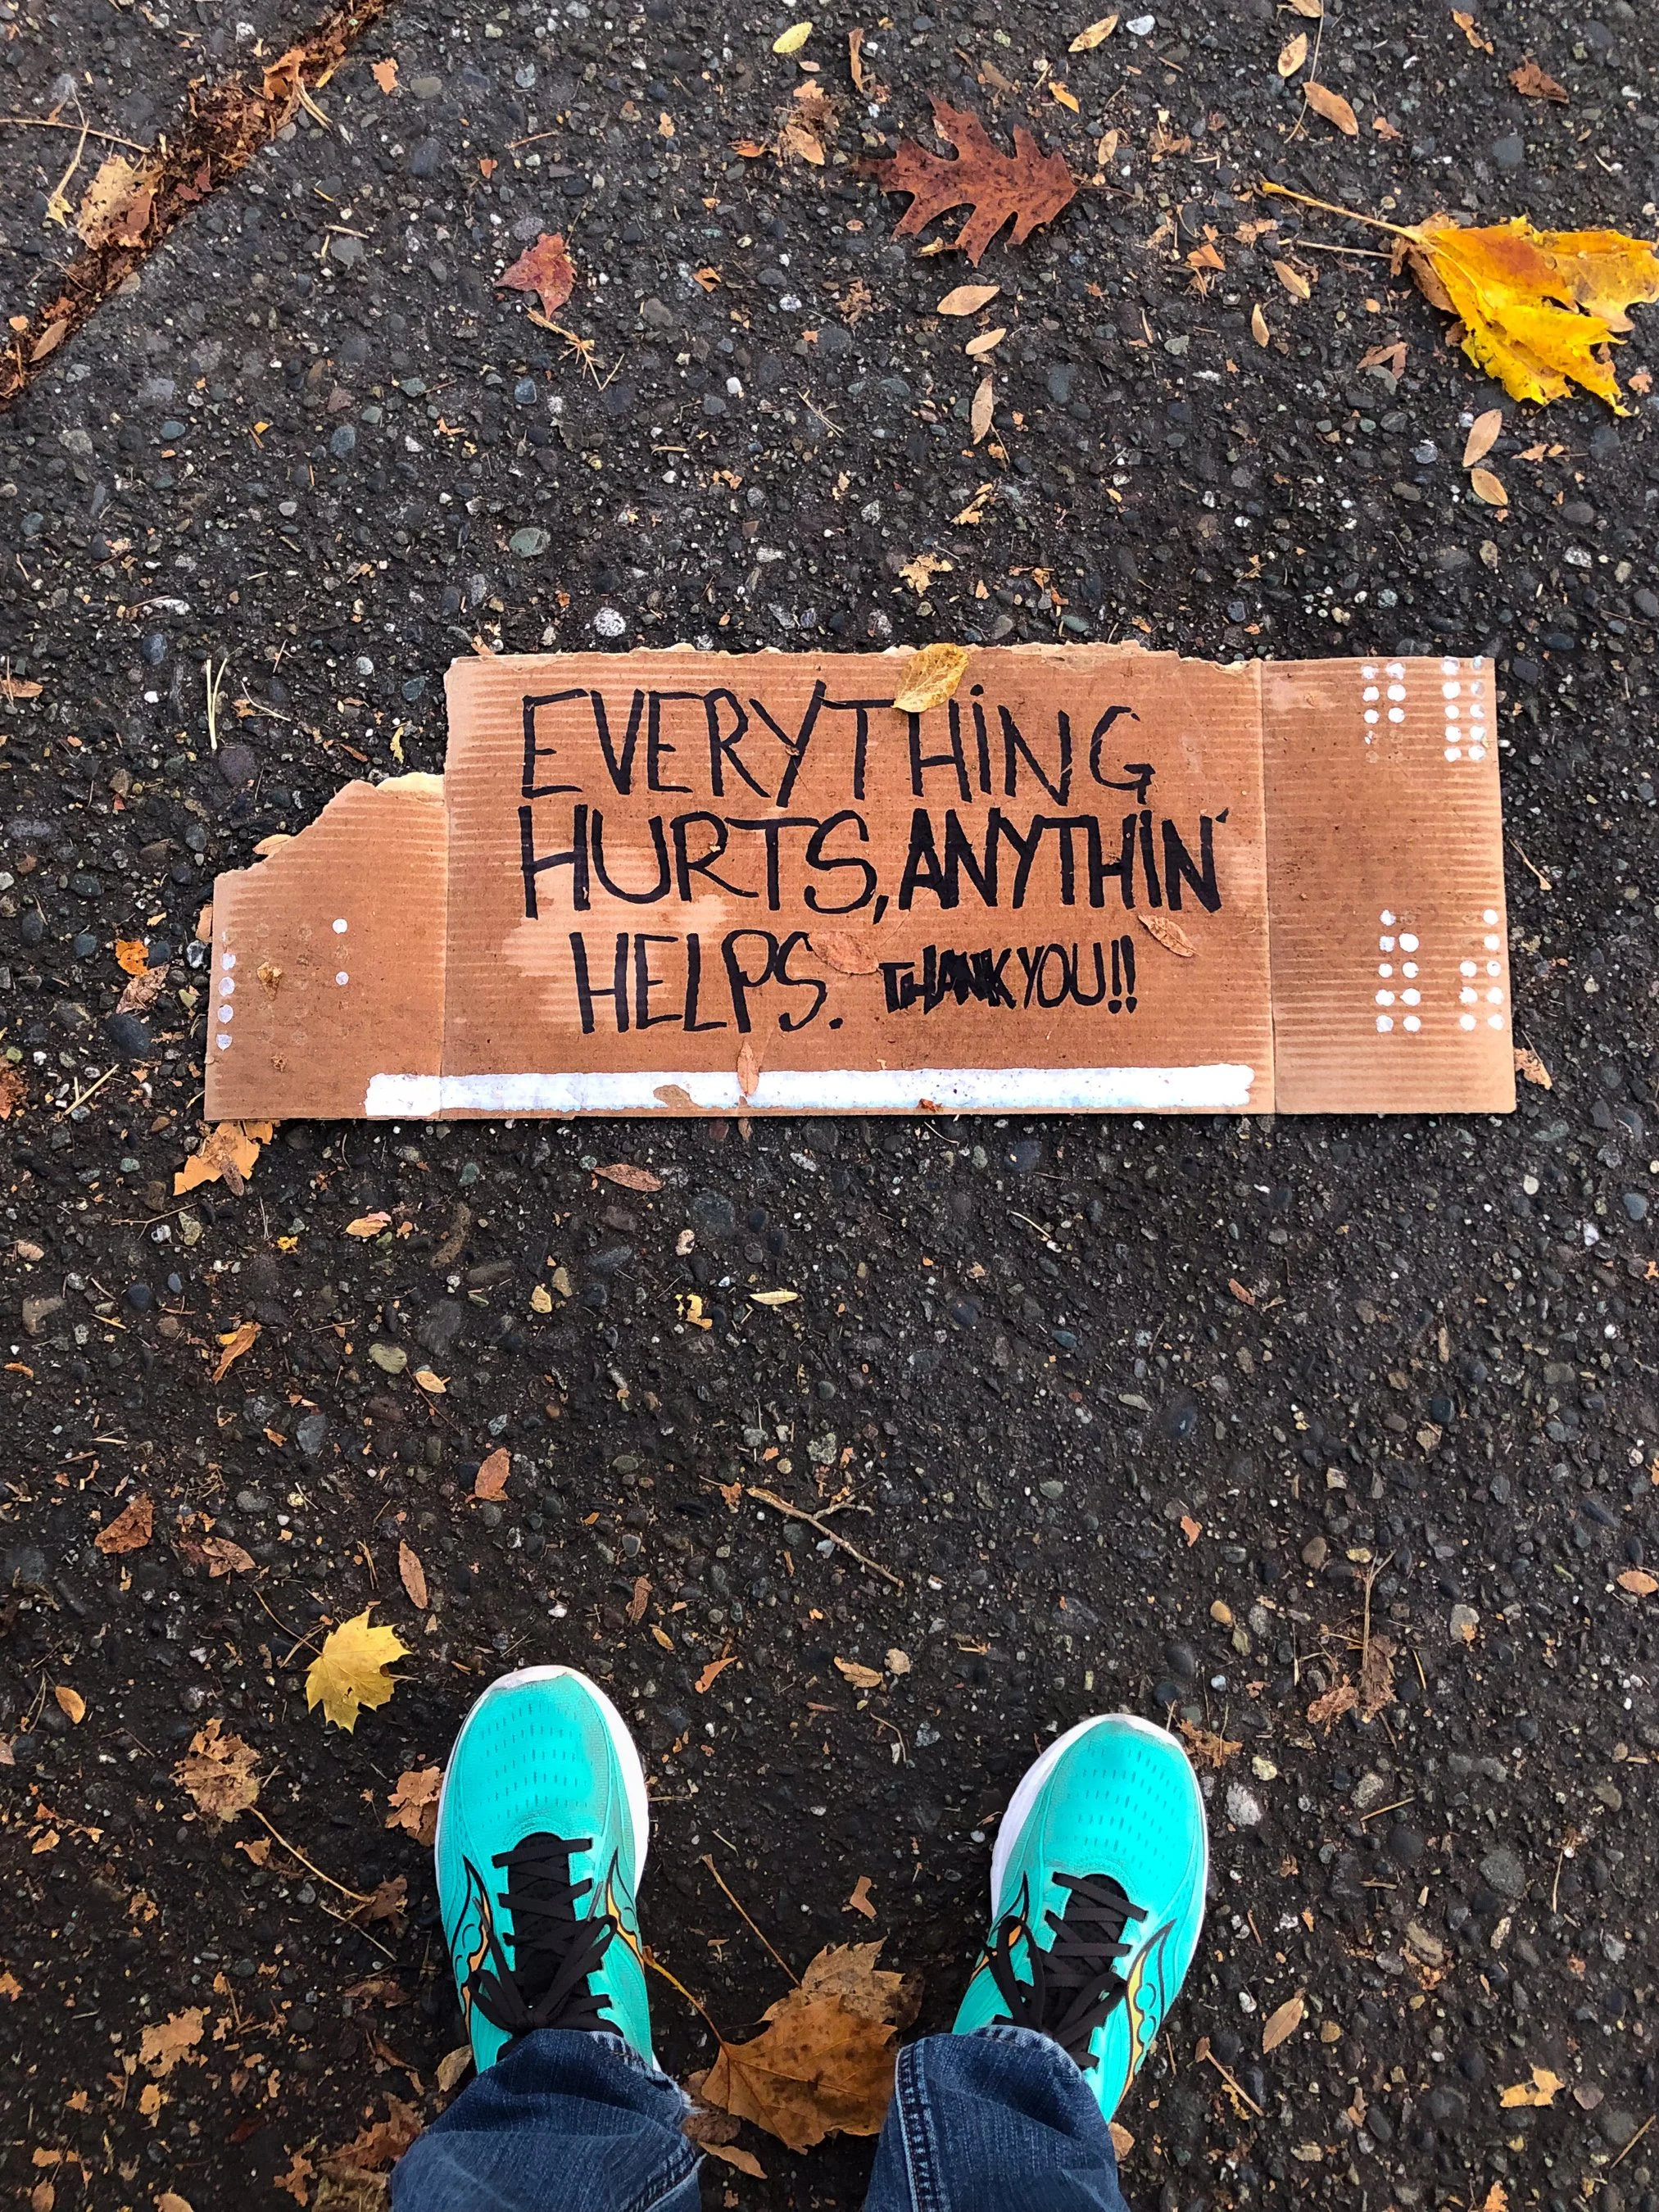 EVERYTHiNG
HURTS, ANYTHIN'
HELPS. THANK YOU!!